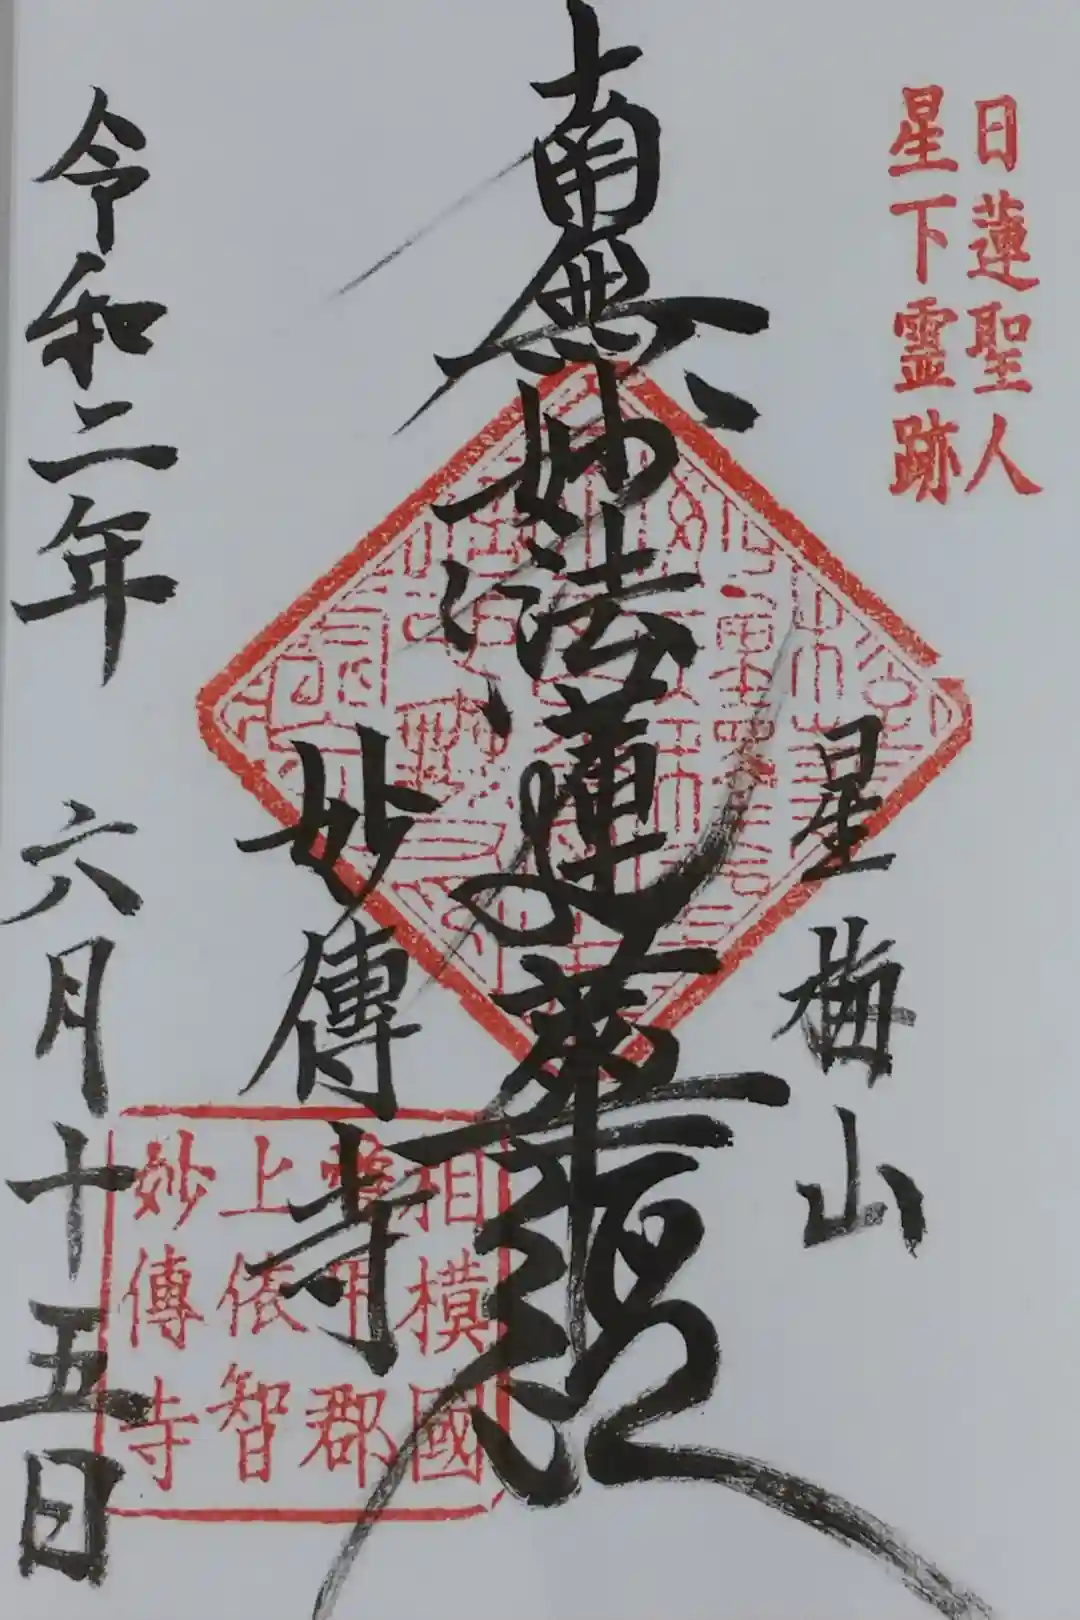 日蓮聖人
星下霊跡
南無妙法蓮華経
星梅山
妙傳寺
相模國
愛甲郡
上依智
妙傳寺
令和二年 六月十五日